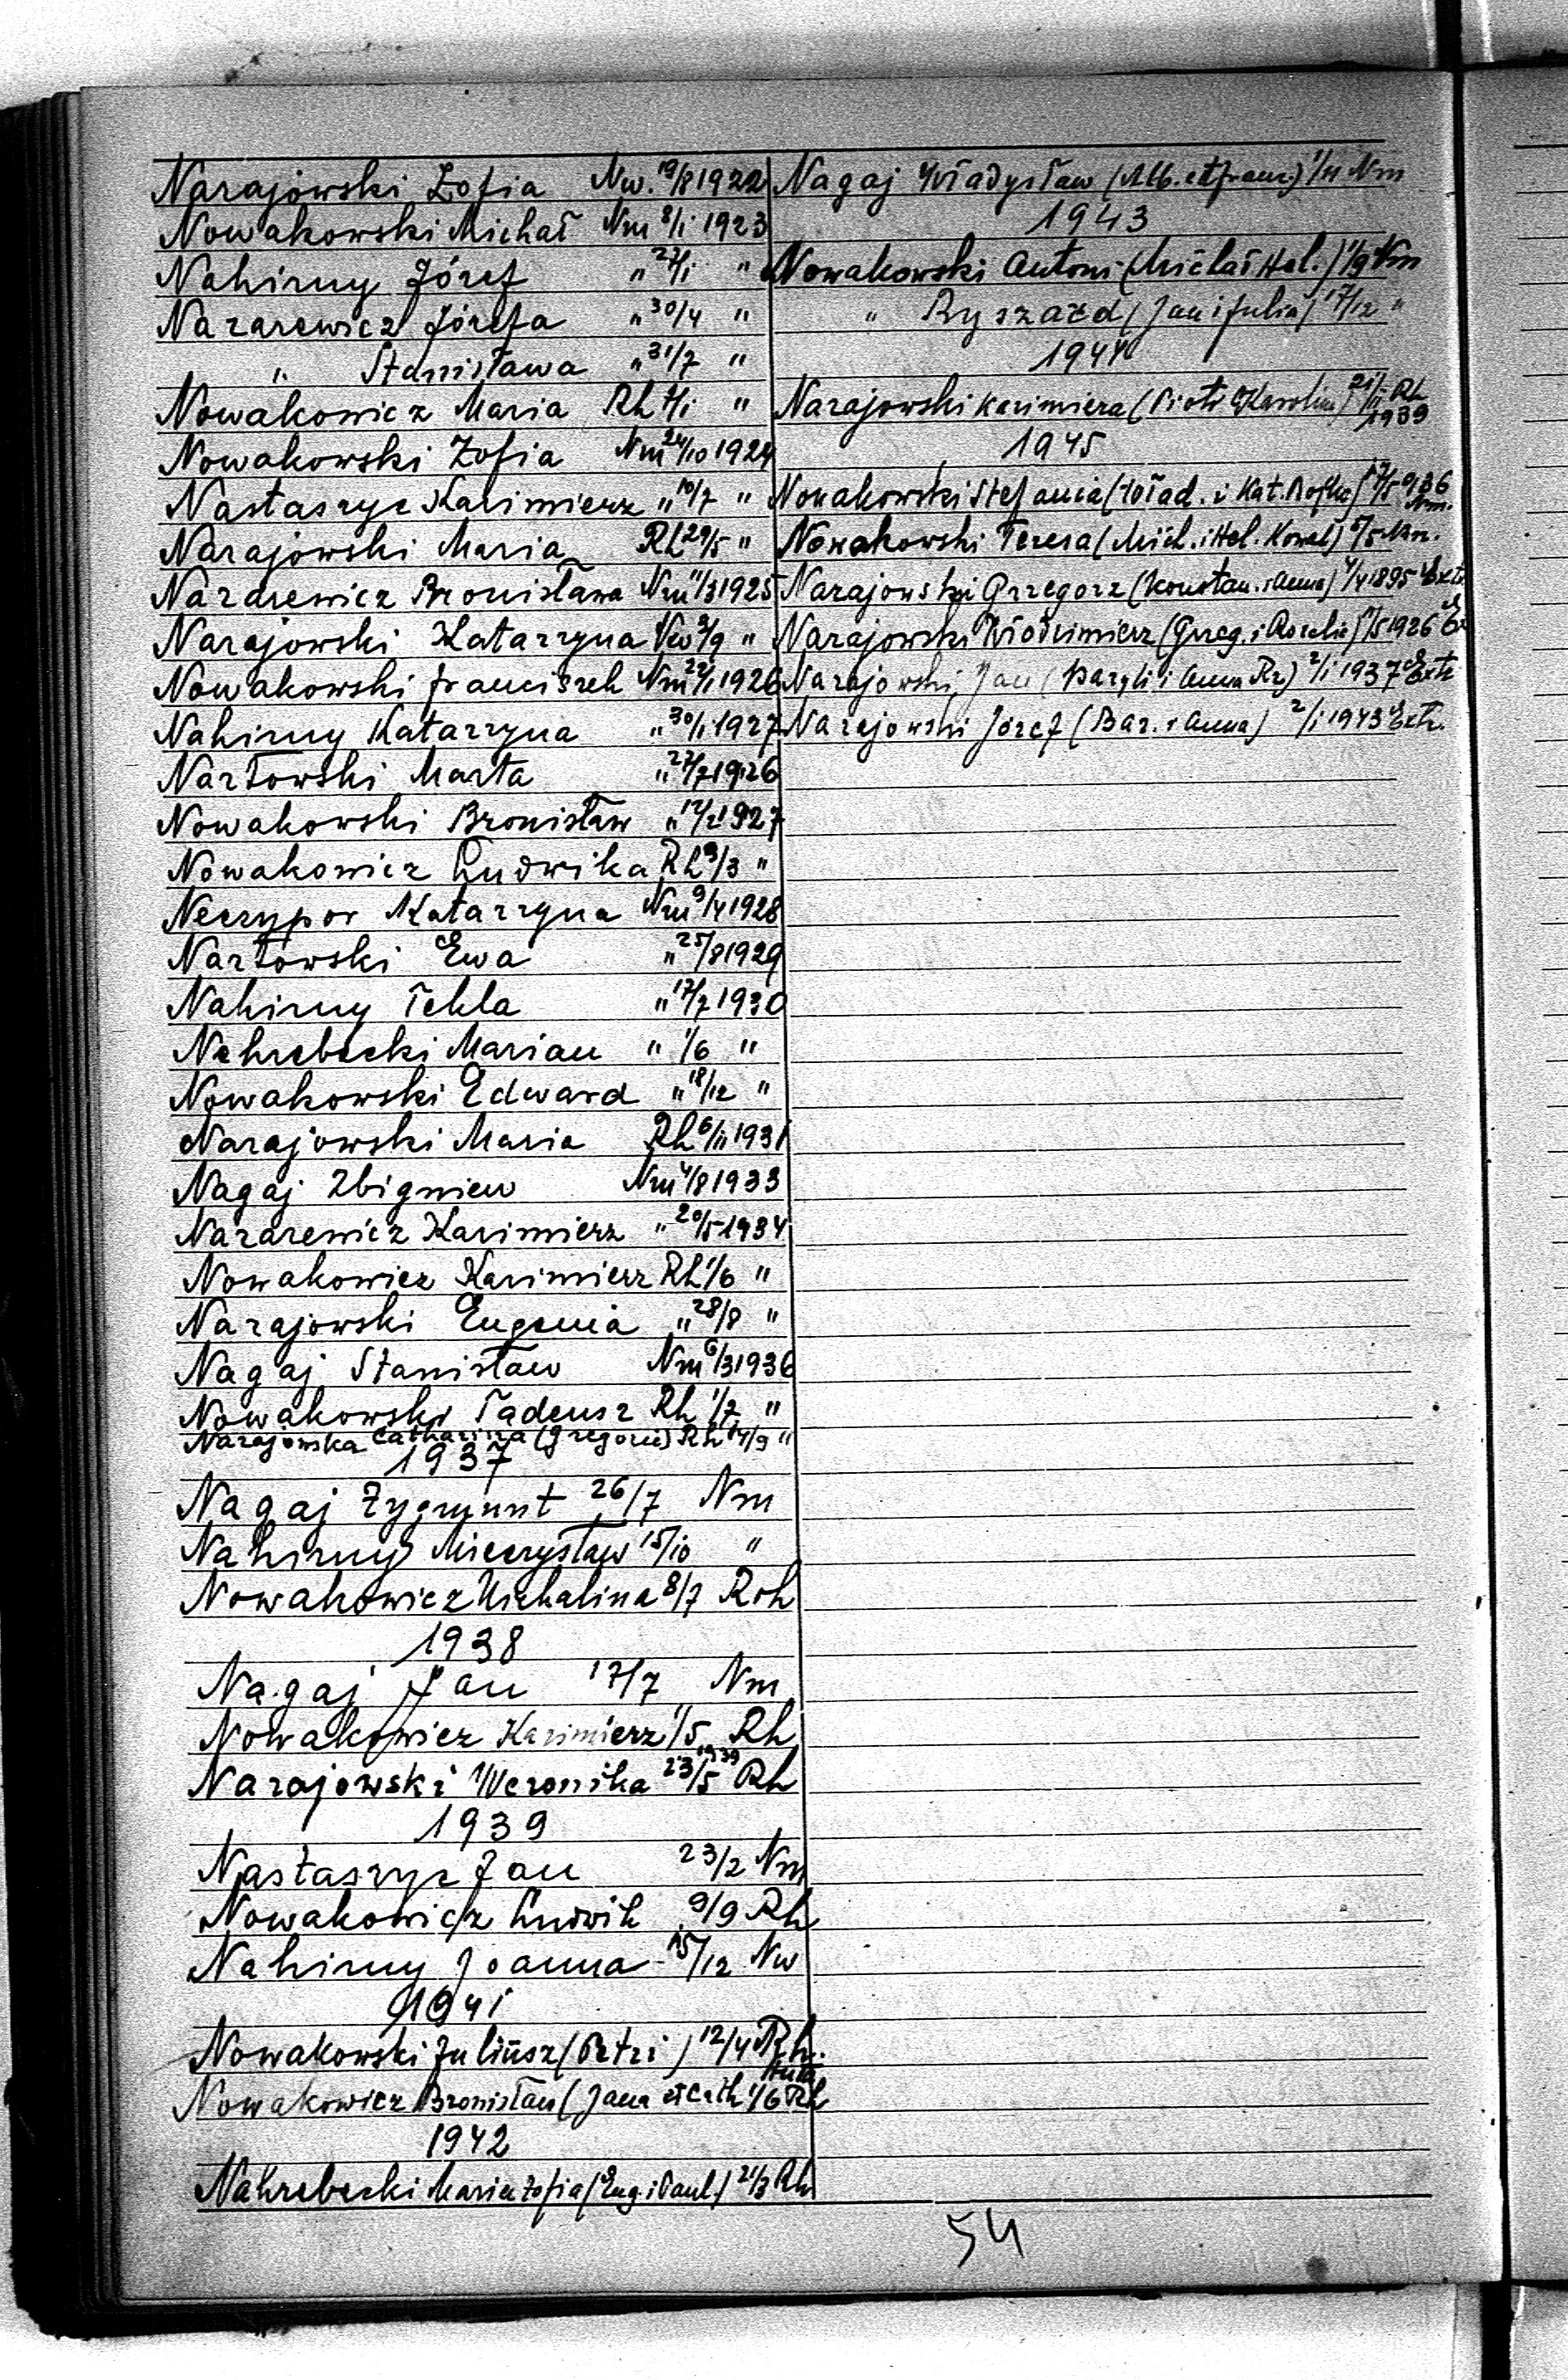 Narajowski Zofia Nw. 19/8 1922
Nowakowski Michał Nm 8/1 1923
Nahirny Józef " 27/1 "
Nazarewicz Józefa " 30/4 "
" Stanisława " 31/7 "
Nowakowicz Maria Rh "
Nowakowski Zofia Nm 24/10 1924
Nastaszyc Kazimierz " 10/7 "
Narajowski Maria Rh 29/5 "
Nazarewicz Bronisława Nm 11/3 1925
Narajowski Katarzyna Nw "
Nowakowski Franciszek Nm 1926
Nahirny Katarzyna " 30/1 1927
Nartowski Marta " 27/7 1926
Nowakowski Bronisław " 1927
Nowakowicz Ludwika Rh 9/3 "
Neczypor Katarzyna Nm 9/4 1928
Nartowski Ewa " 25/8 1929
Nahirny Tekla " 17/7 1930
Nahrebecki Marian " 1/6 "
Nowakowski Edward " 18/12 "
Narajowski Maria Rh 6/11 1931
Nagaj Zbigniew Nm 4/8 1933
Nazarewicz Kazimierz " 20/5 1934
Nowakowicz Kazimierz Rh 1/6 "
Narajowski Eugenia " 28/8 "
Nagaj Stanisław Nm 6/3 1936
Nowakowski Tadeusz Rh 1/7 "
Narajowska Catharina (Gregorii) Rh 14/9 "
1937
Nagaj Zygmunt 26/7 Nm
Nahirny Mieczysław 15/10 "
Nowakowicz Michalina 8/7 Roh
1938
Nagaj Jan 17/7 Nm
Nowakowicz Kazimierz 1/5 Rh
Narajowski Weronika 23/5 1939 Rh
1939
Nastaszyc Jan 23/2 Nm
Nowakowicz Ludwik 9/9 Rh
Nahirny Joanna 15/12 Nw
1941
Nowakowski Juliusz (Petri) 12/4 Rh.
Nowakowicz Bronisław (Jana et Cath. 1/6 Rh
1942
Nahrebecki Maria Zofia (Eug. i Paul.) 21/3 Rh
Nagaj Władysław (Alb. et Franc.) 1/11 Nm
1943
Nowakowski Antoni (Michał Hel.) 1/9 Nm
" Ryszard (Jan i Julia) 17/12 "
1944
Narajowski Kazimiera (Piotr Karolina) 21/11 Rh
1939
1945
Nowakowski Stefania (Wład. i Kat. 936
Nm.
Nowakowski Teresa (Mich. i Hel. Kowal) Nm.
Narajowski Grzegorz (Konstan. i Anna) 4/4 1895 Extr
Narajowski Włodzimierz (Grzeg. i Rozalia) 1926 Ex
Narajowski Jan (Bazyli i Anna Rz) 2/1 1937 Extr
Narajowski Józef (Baz. i Anna) 2/1 1943 Extr.
54